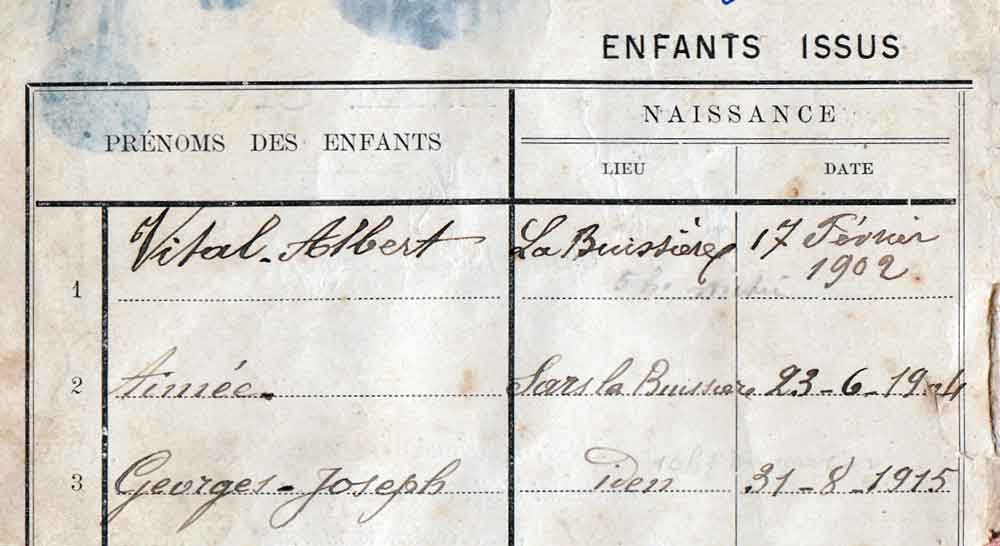 ENFANTS ISSUS
NAISSANCE
PRÉNOMS DES ENFANTS
LIEU
DATE
Vital-Albert La Buissière 17 Février
1902
1
2 Aimée- Sars la Buissière 23-6-19
3 Georges-Joseph Iden 31-8-1915